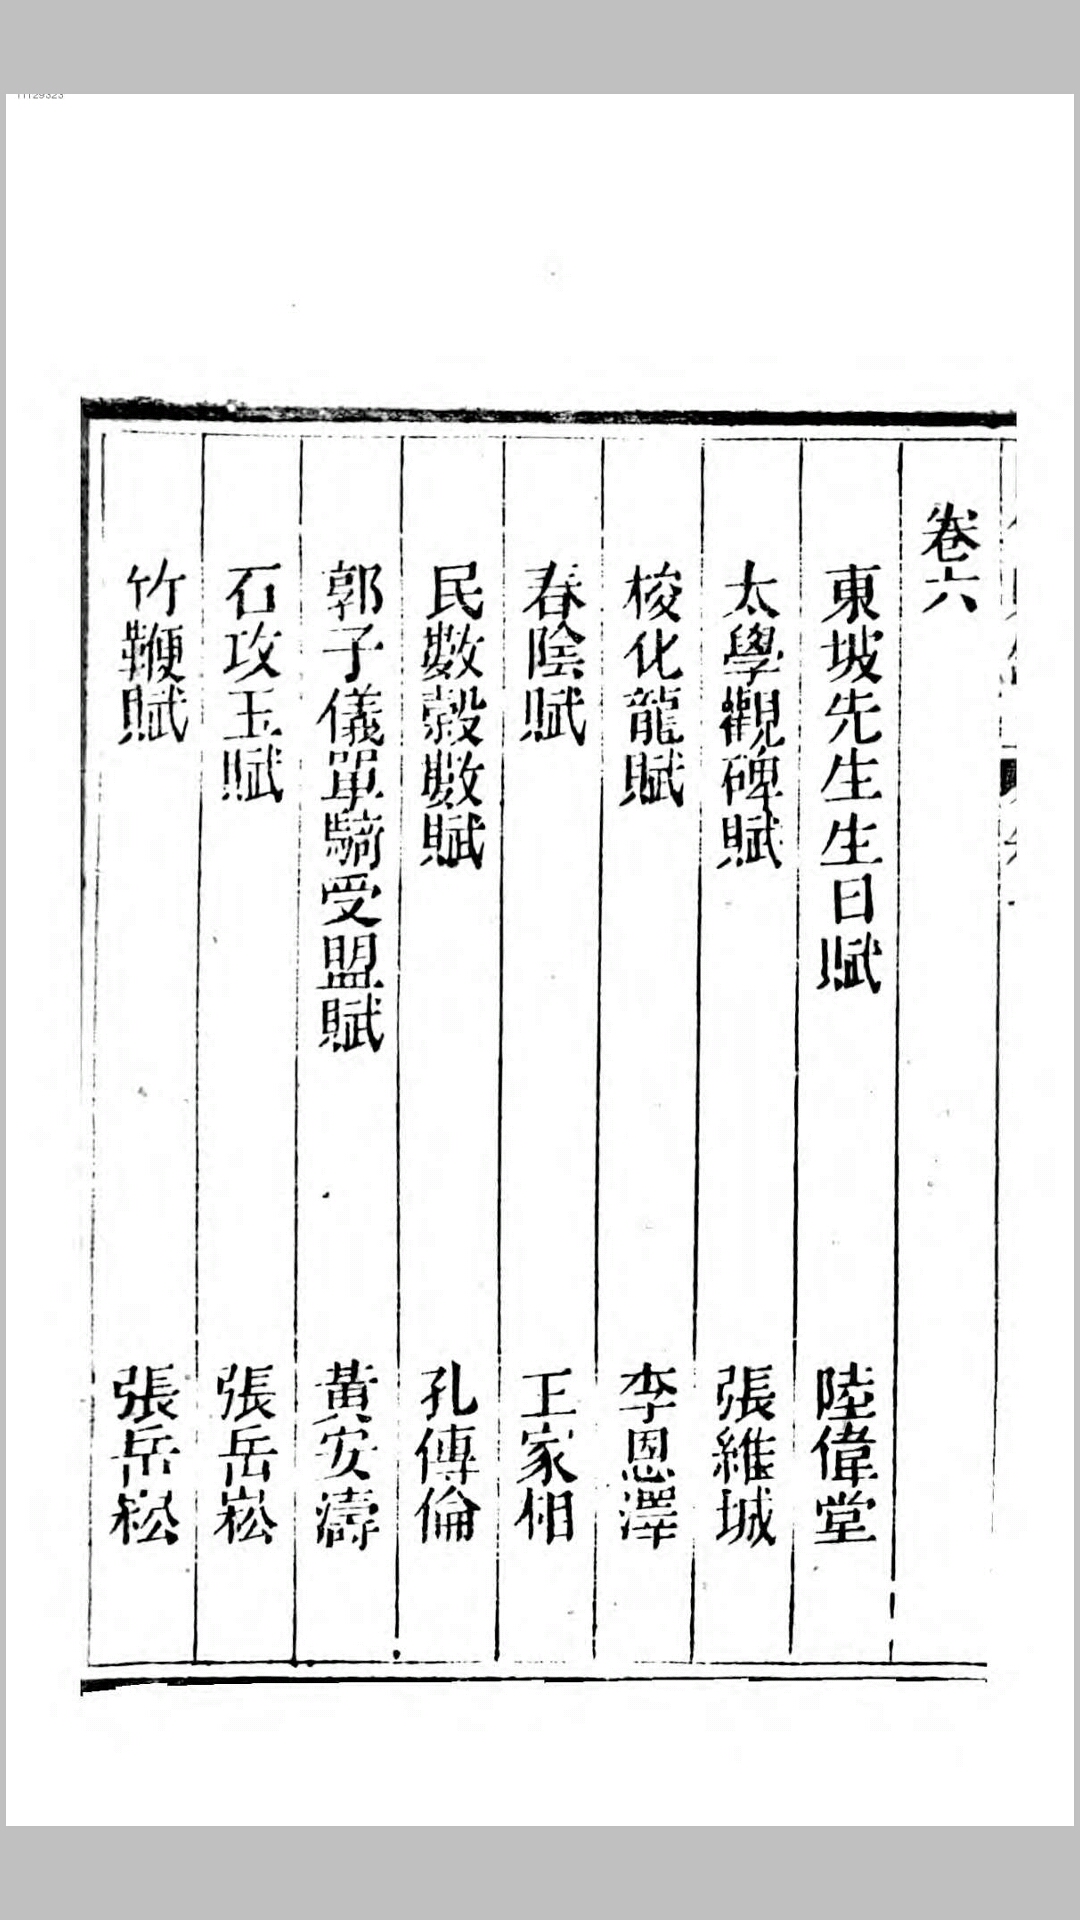 卷六
東坡先生生日賦 陸偉堂
太學觀碑賦 張維城
梭化龍賦 李恩澤
春陰賦 王家相
民數穀數賦 孔傳倫
郭子儀單騎受盟賦 黃安濤
石攻玉賦 張岳崧
竹鞭賦 張岳崧